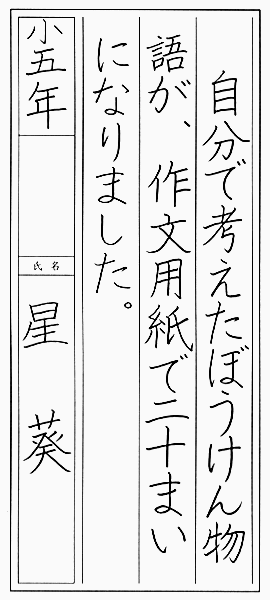 自分で考えたぼうけん物
語が、作文用紙で二十まい
になりました。
小五年
氏名
星葵